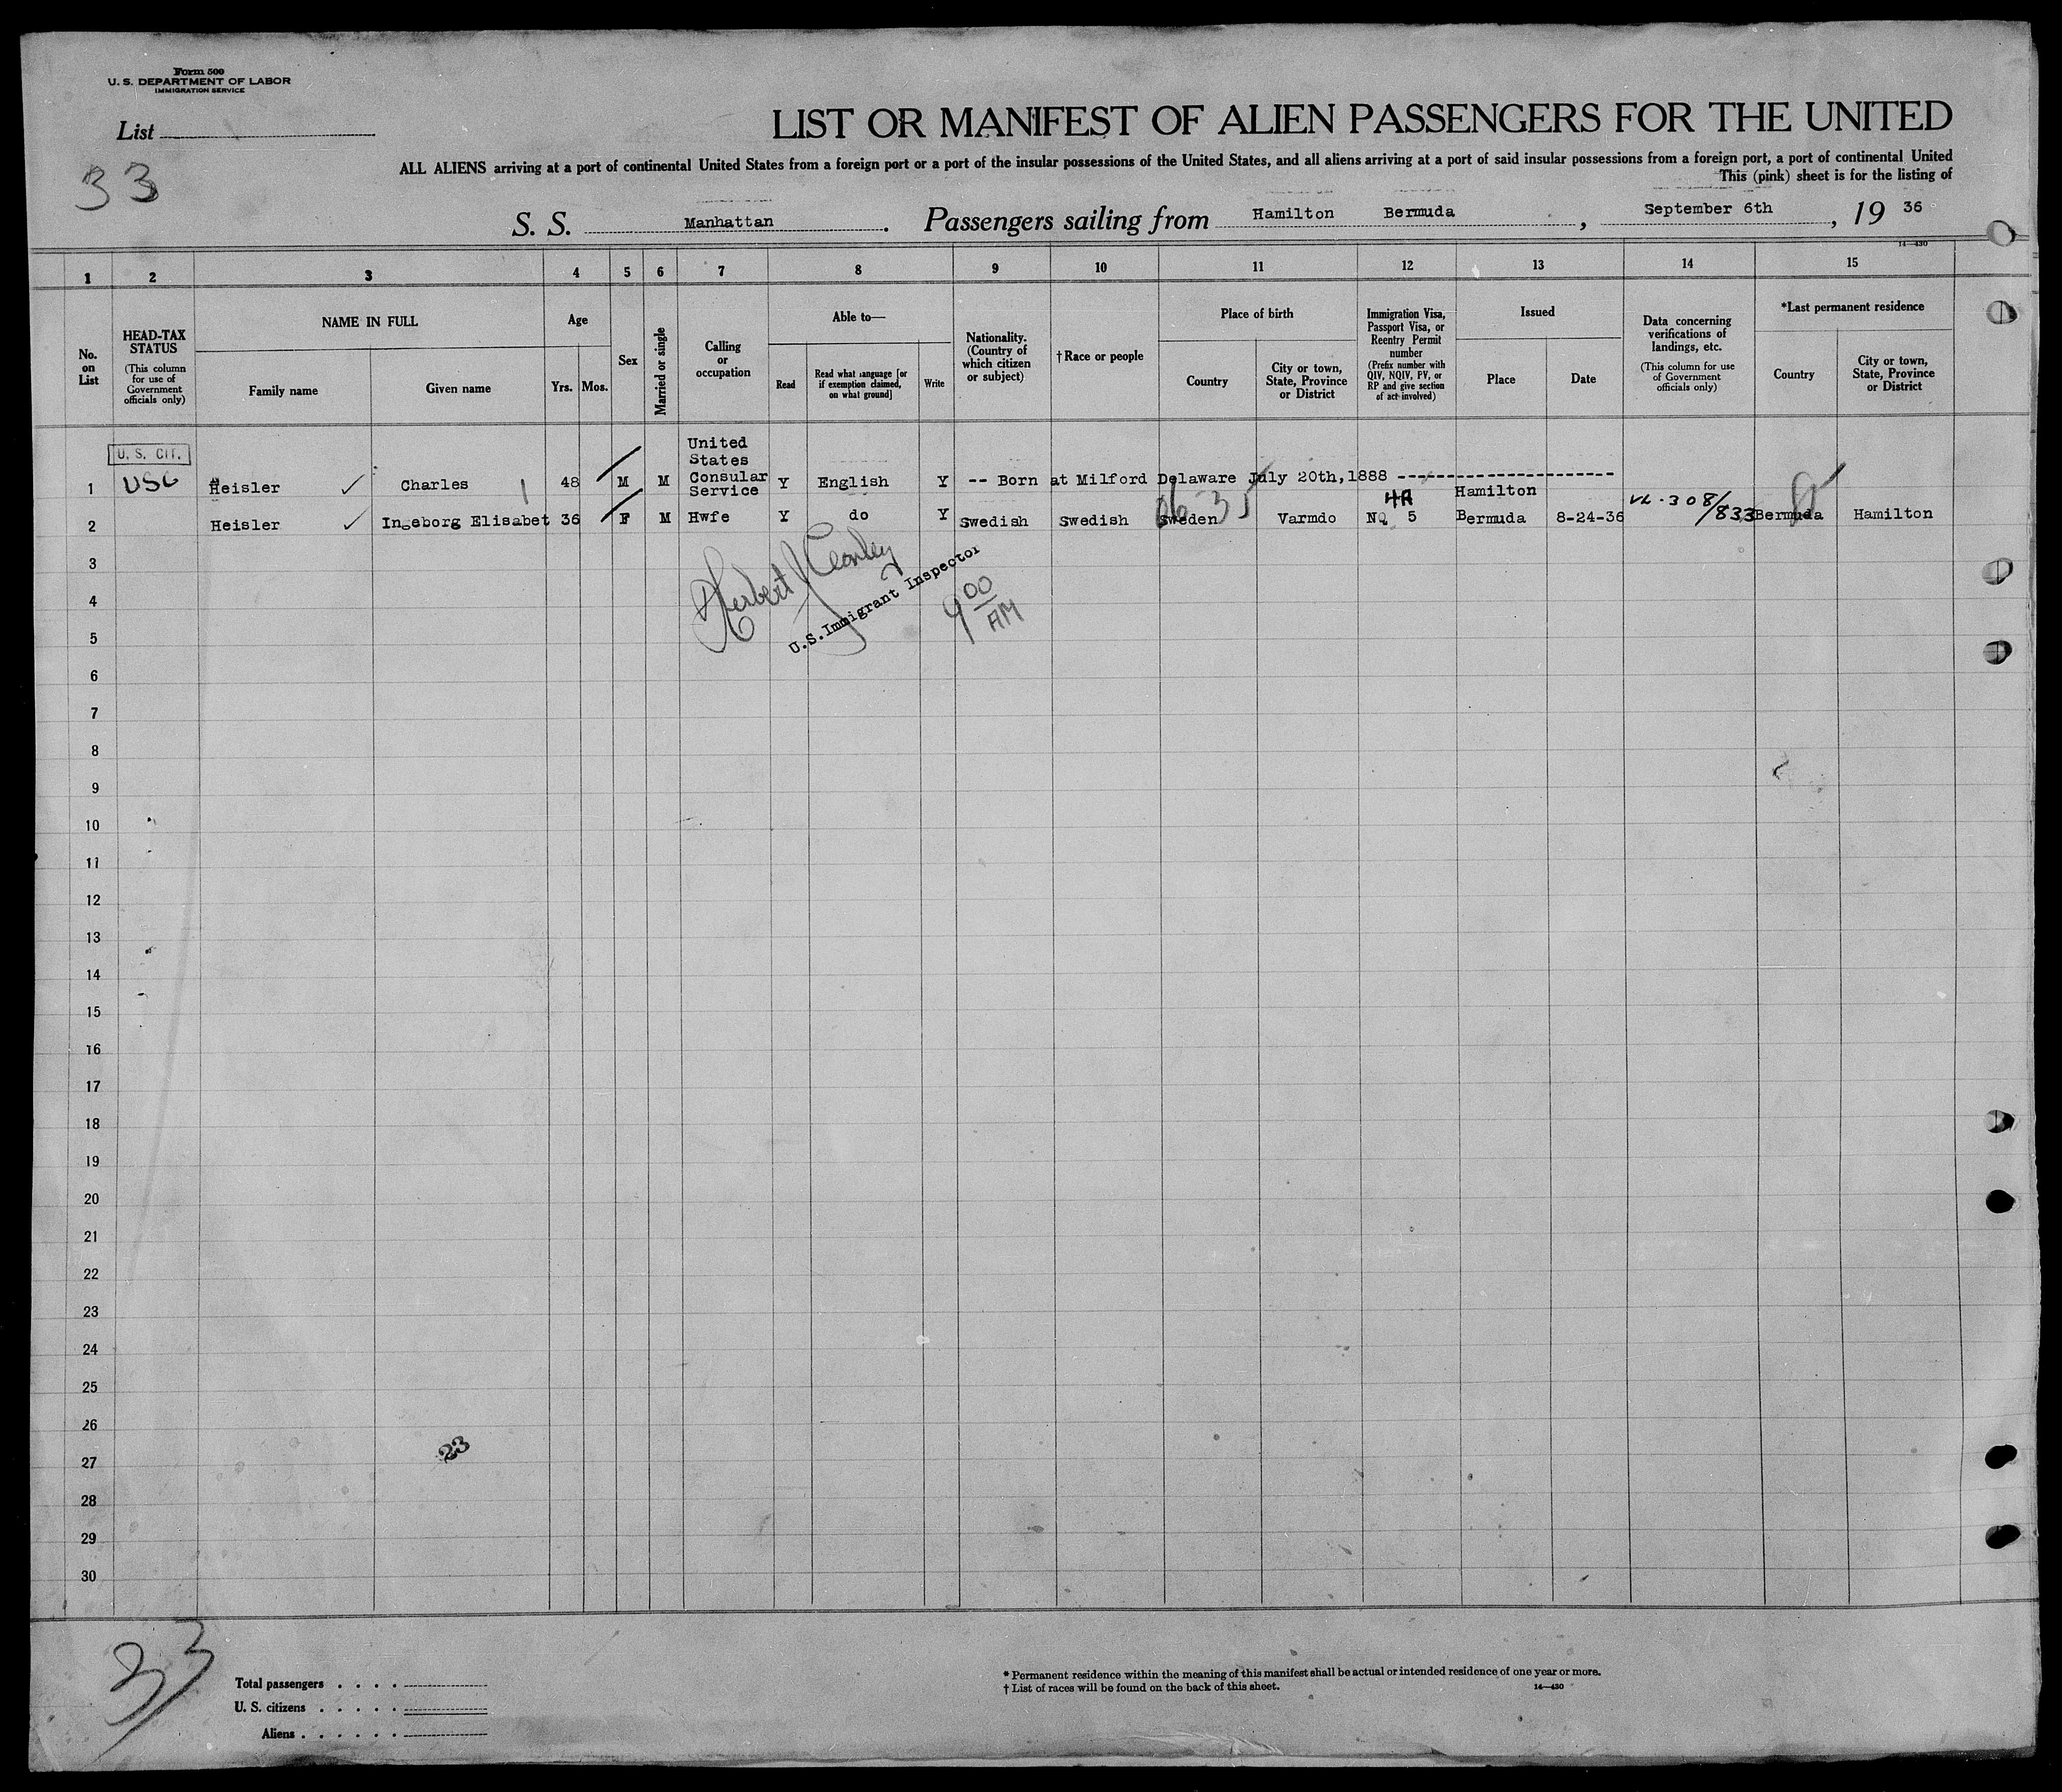 Form 500
U. S. DEPARTMENT OF LABOR
IMMIGRATION SERVICE
List
33
LIST OR MANIFEST OF ALIEN PASSENGERS FOR THE UNITED
ALL ALIENS arriving at a port of continental United States from a foreign port or a port of the insular possessions of the United States, and all aliens arriving at a port of said insular possessions from a foreign port, a port of continental United
This (pink) sheet is for the listing of
S. S. Manhattan. Passengers sailing from Hamilton Bermuda, September 6th, 19 36
14—430
1 2 3 4 5 6 7 8 9 10 11 12 13 14 15
No. on List
HEAD-TAX STATUS
(This column for use of Government officials only)
NAME IN FULL
Family name
Given name
Age
Yrs.
Mos.
Sex
Married or single
Calling or occupation
Able to—
Read
Read what language [or if exemption claimed, on what ground]
Write
Nationality. (Country of which citizen or subject)
†Race or people
Place of birth
Country
City or town, State, Province or District
Immigration Visa, Passport Visa, or Reentry Permit number
(Prefix number with QIV, NQIV, PV, or RP and give section of act involved)
Issued
Place
Date
Data concerning verifications of landings, etc.
(This column for use of Government officials only)
*Last permanent residence
Country
City or town, State, Province or District
U. S. CIT.
1 USC Heisler Charles 48 M M United States Consular Service Y English Y -- Born at Milford Delaware July 20th,1888 ----------------------
2 Heisler Ingeborg Elisabet 36 F M Hwfe Y do Y Swedish Swedish Sweden Varmdo NQ 5 Hamilton Bermuda 8-24-36 308/833 Bermuda Hamilton
4A
Herbert
U.S.Immigrant Inspector
9 00 AM
3
4
5
6
7
8
9
10
11
12
13
14
15
16
17
18
19
20
21
22
23
24
25
26
27
28
29
30
23
33
Total passengers . . . .
U. S. citizens . . . . .
Aliens . . . . . .
* Permanent residence within the meaning of this manifest shall be actual or intended residence of one year or more.
† List of races will be found on the back of this sheet.
14—430